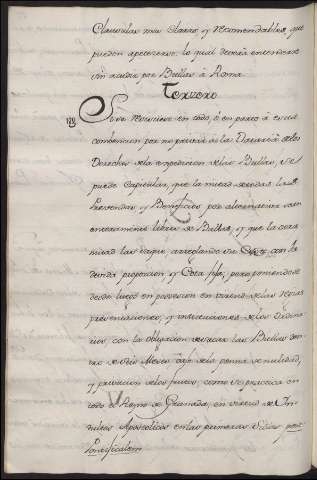 Clausulas mas claras, y recomendables, que
puedan apetecerse, lo qual deverá entenderse
sin acudir por Bullas á Roma.
Tercero
Si se reduxere en todo, ó en parte á esta
combencion por no privar á la Dataría de los
Derechos de la expedicion de las Bullas, se
puede Capitular, que la mitad de todas las
Prevendas, y Beneficios por alternativa sean
enteramente libres de Bullas, y que la otra
mitad las saque, arreglando su Coste con la
devida proporcion, y Cota fija, pero poniendose
desde luego en posesion en virtud de las Reales
presentaciones, y instituciones de los Ordina-
rios, con la obligacion de sacar las Bullas den-
tro de seis Meses bajo de la penna de nulidad,
y privacion de los frutos, como se practica en
todo el Reyno de Granada, en virtud de In-
dultos Apostolicos en las primeras Sillas post
Pontificalem